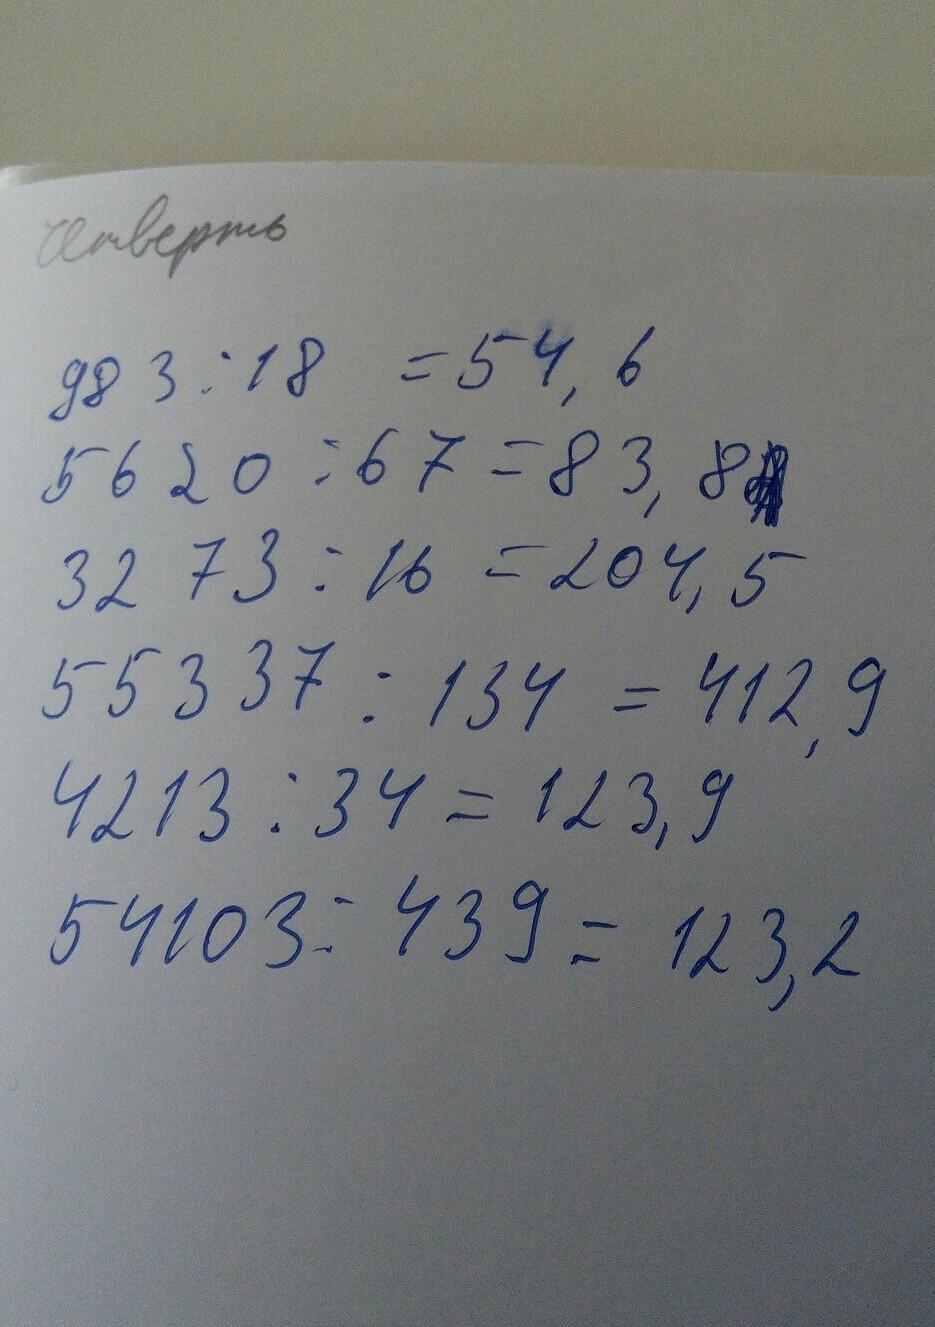 четверть
983:18 =54,6
5620:67=83,8
3273:16=204,5
55337:134=412,9
4213:34=123,9
54103:439=123,2